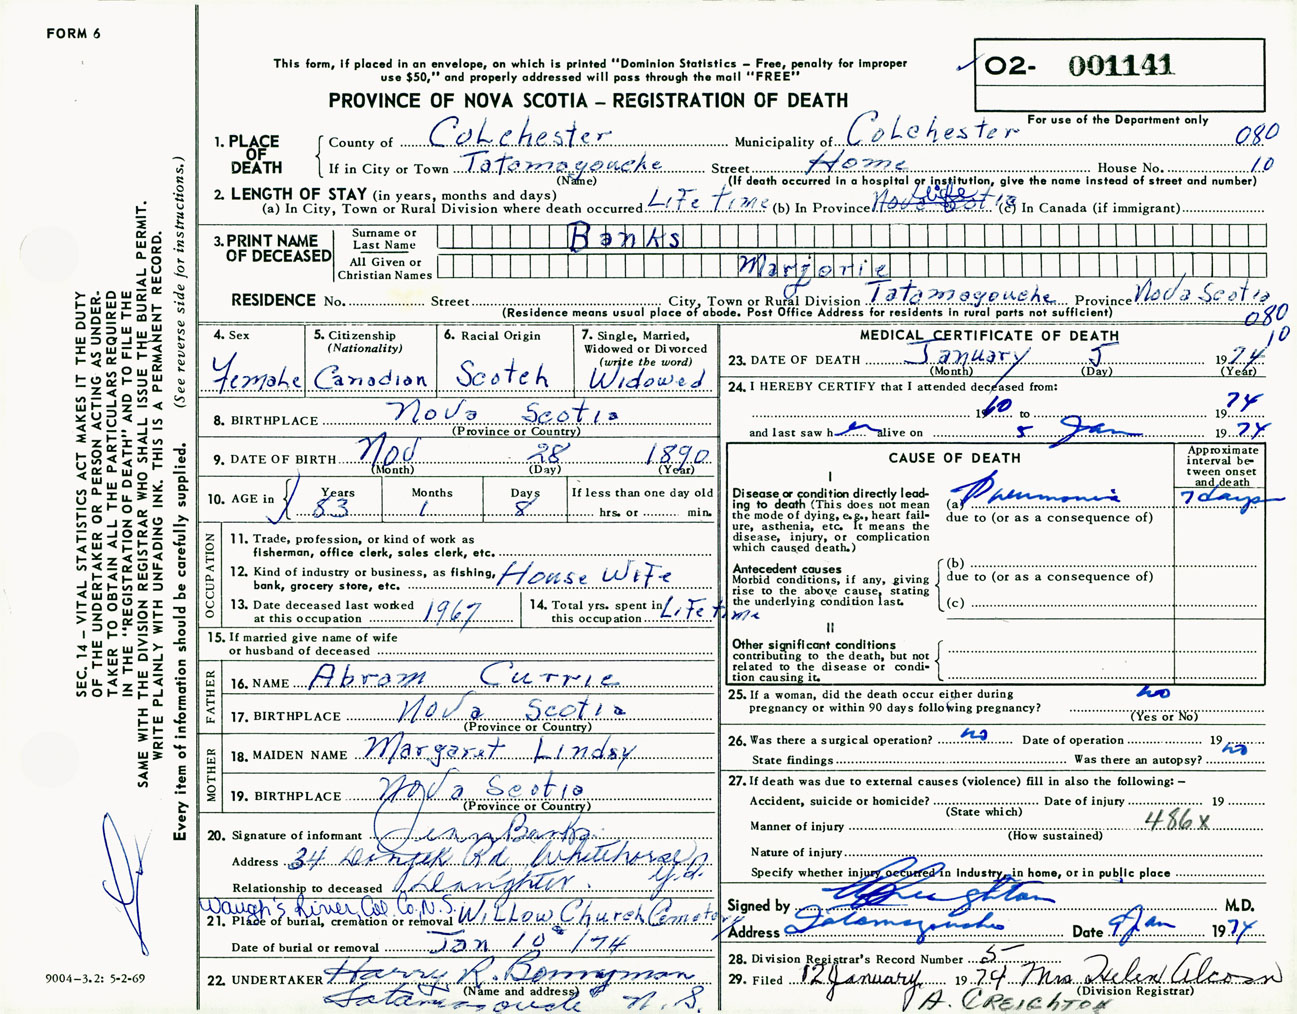 FORM 6
This form, if placed in an envelope, on which is printed "Dominion Statistics – Free, penalty for improper
use $50," and properly addressed will pass through the mail "FREE"
02- 001141
PROVINCE OF NOVA SCOTIA – REGISTRATION OF DEATH
For use of the Department only
1. PLACE OF DEATH County of Colchester Municipality of Colchester 080
If in City or Town Tatamagouche Street Home House No. 10
(Name) (If death occurred in a hospital or institution, give the name instead of street and number)
2. LENGTH OF STAY (in years, months and days)
(a) In City, Town or Rural Division where death occurred Life time (b) In Province Nova Scotia Life (c) In Canada (if immigrant)
3. PRINT NAME OF DECEASED
Surname or Last Name Banks
All Given or Christian Names Marjorie
RESIDENCE No. Street City, Town or Rural Division Tatamagouche Province Nova Scotia
(Residence means usual place of abode. Post Office Address for residents in rural parts not sufficient) 080
10
4. Sex Female
5. Citizenship (Nationality) Canadian
6. Racial Origin Scotch
7. Single, Married, Widowed or Divorced (write the word) Widowed
8. BIRTHPLACE Nova Scotia
(Province or Country)
9. DATE OF BIRTH Nov 28 1890
(Month) (Day) (Year)
10. AGE in Years 83 Months 1 Days 8 If less than one day old
hrs. or min.
OCCUPATION
11. Trade, profession, or kind of work as
fisherman, office clerk, sales clerk, etc.
12. Kind of industry or business, as fishing,
bank, grocery store, etc. House Wife
13. Date deceased last worked
at this occupation 1967
14. Total yrs. spent in
this occupation Life time
15. If married give name of wife
or husband of deceased
FATHER
16. NAME Abram Currie
17. BIRTHPLACE Nova Scotia
(Province or Country)
MOTHER
18. MAIDEN NAME Margaret Lindsy
19. BIRTHPLACE Nova Scotia
(Province or Country)
20. Signature of informant Banks
Address 34 Rd Whitehorse
Relationship to deceased Daughter.
Waugh's River, Col. Co, N.S.
21. Place of burial, cremation or removal Willow Church Cemetery
Date of burial or removal Jan 10 /74
22. UNDERTAKER Harry R. Bonnyman
(Name and address)
Tatamagouche N. S.
MEDICAL CERTIFICATE OF DEATH
23. DATE OF DEATH January 5 1974
(Month) (Day) (Year)
24. I HEREBY CERTIFY that I attended deceased from:
1960 to 1974
and last saw her alive on 5 Jan 1974
CAUSE OF DEATH
Approximate interval between onset and death
I
Disease or condition directly leading
to death (This does not mean
the mode of dying, e.g., heart failure,
asthenia, etc. It means the
disease, injury, or complication
which caused death.)
(a) Pneumonia 7 days
due to (or as a consequence of)
Antecedent causes
Morbid conditions, if any, giving
rise to the above cause, stating
the underlying condition last.
(b)
due to (or as a consequence of)
(c)
II
Other significant conditions
contributing to the death, but not
related to the disease or condition
causing it.
25. If a woman, did the death occur either during
pregnancy or within 90 days following pregnancy? no
(Yes or No)
26. Was there a surgical operation? no Date of operation 19
State findings Was there an autopsy? no
27. If death was due to external causes (violence) fill in also the following: –
Accident, suicide or homicide? Date of injury 19
(State which)
Manner of injury 486x
(How sustained)
Nature of injury
Specify whether injury occurred in Industry, in home, or in public place
Signed by Creighton M.D.
Address Tatamagouche Date 9 Jan 1974
28. Division Registrar's Record Number 5
29. Filed 12 January 1974 Mrs Helen Alcorn
(Division Registrar)
A. CREIGHTON
SEC. 14 – VITAL STATISTICS ACT MAKES IT THE DUTY
OF THE UNDERTAKER OR PERSON ACTING AS UNDER-
TAKER TO OBTAIN ALL THE PARTICULARS REQUIRED
IN THE "REGISTRATION OF DEATH" AND TO FILE THE
SAME WITH THE DIVISION REGISTRAR WHO SHALL ISSUE THE BURIAL PERMIT.
WRITE PLAINLY WITH UNFADING INK. THIS IS A PERMANENT RECORD.
Every item of information should be carefully supplied. (See reverse side for instructions.)
9004-3.2: 5-2-69